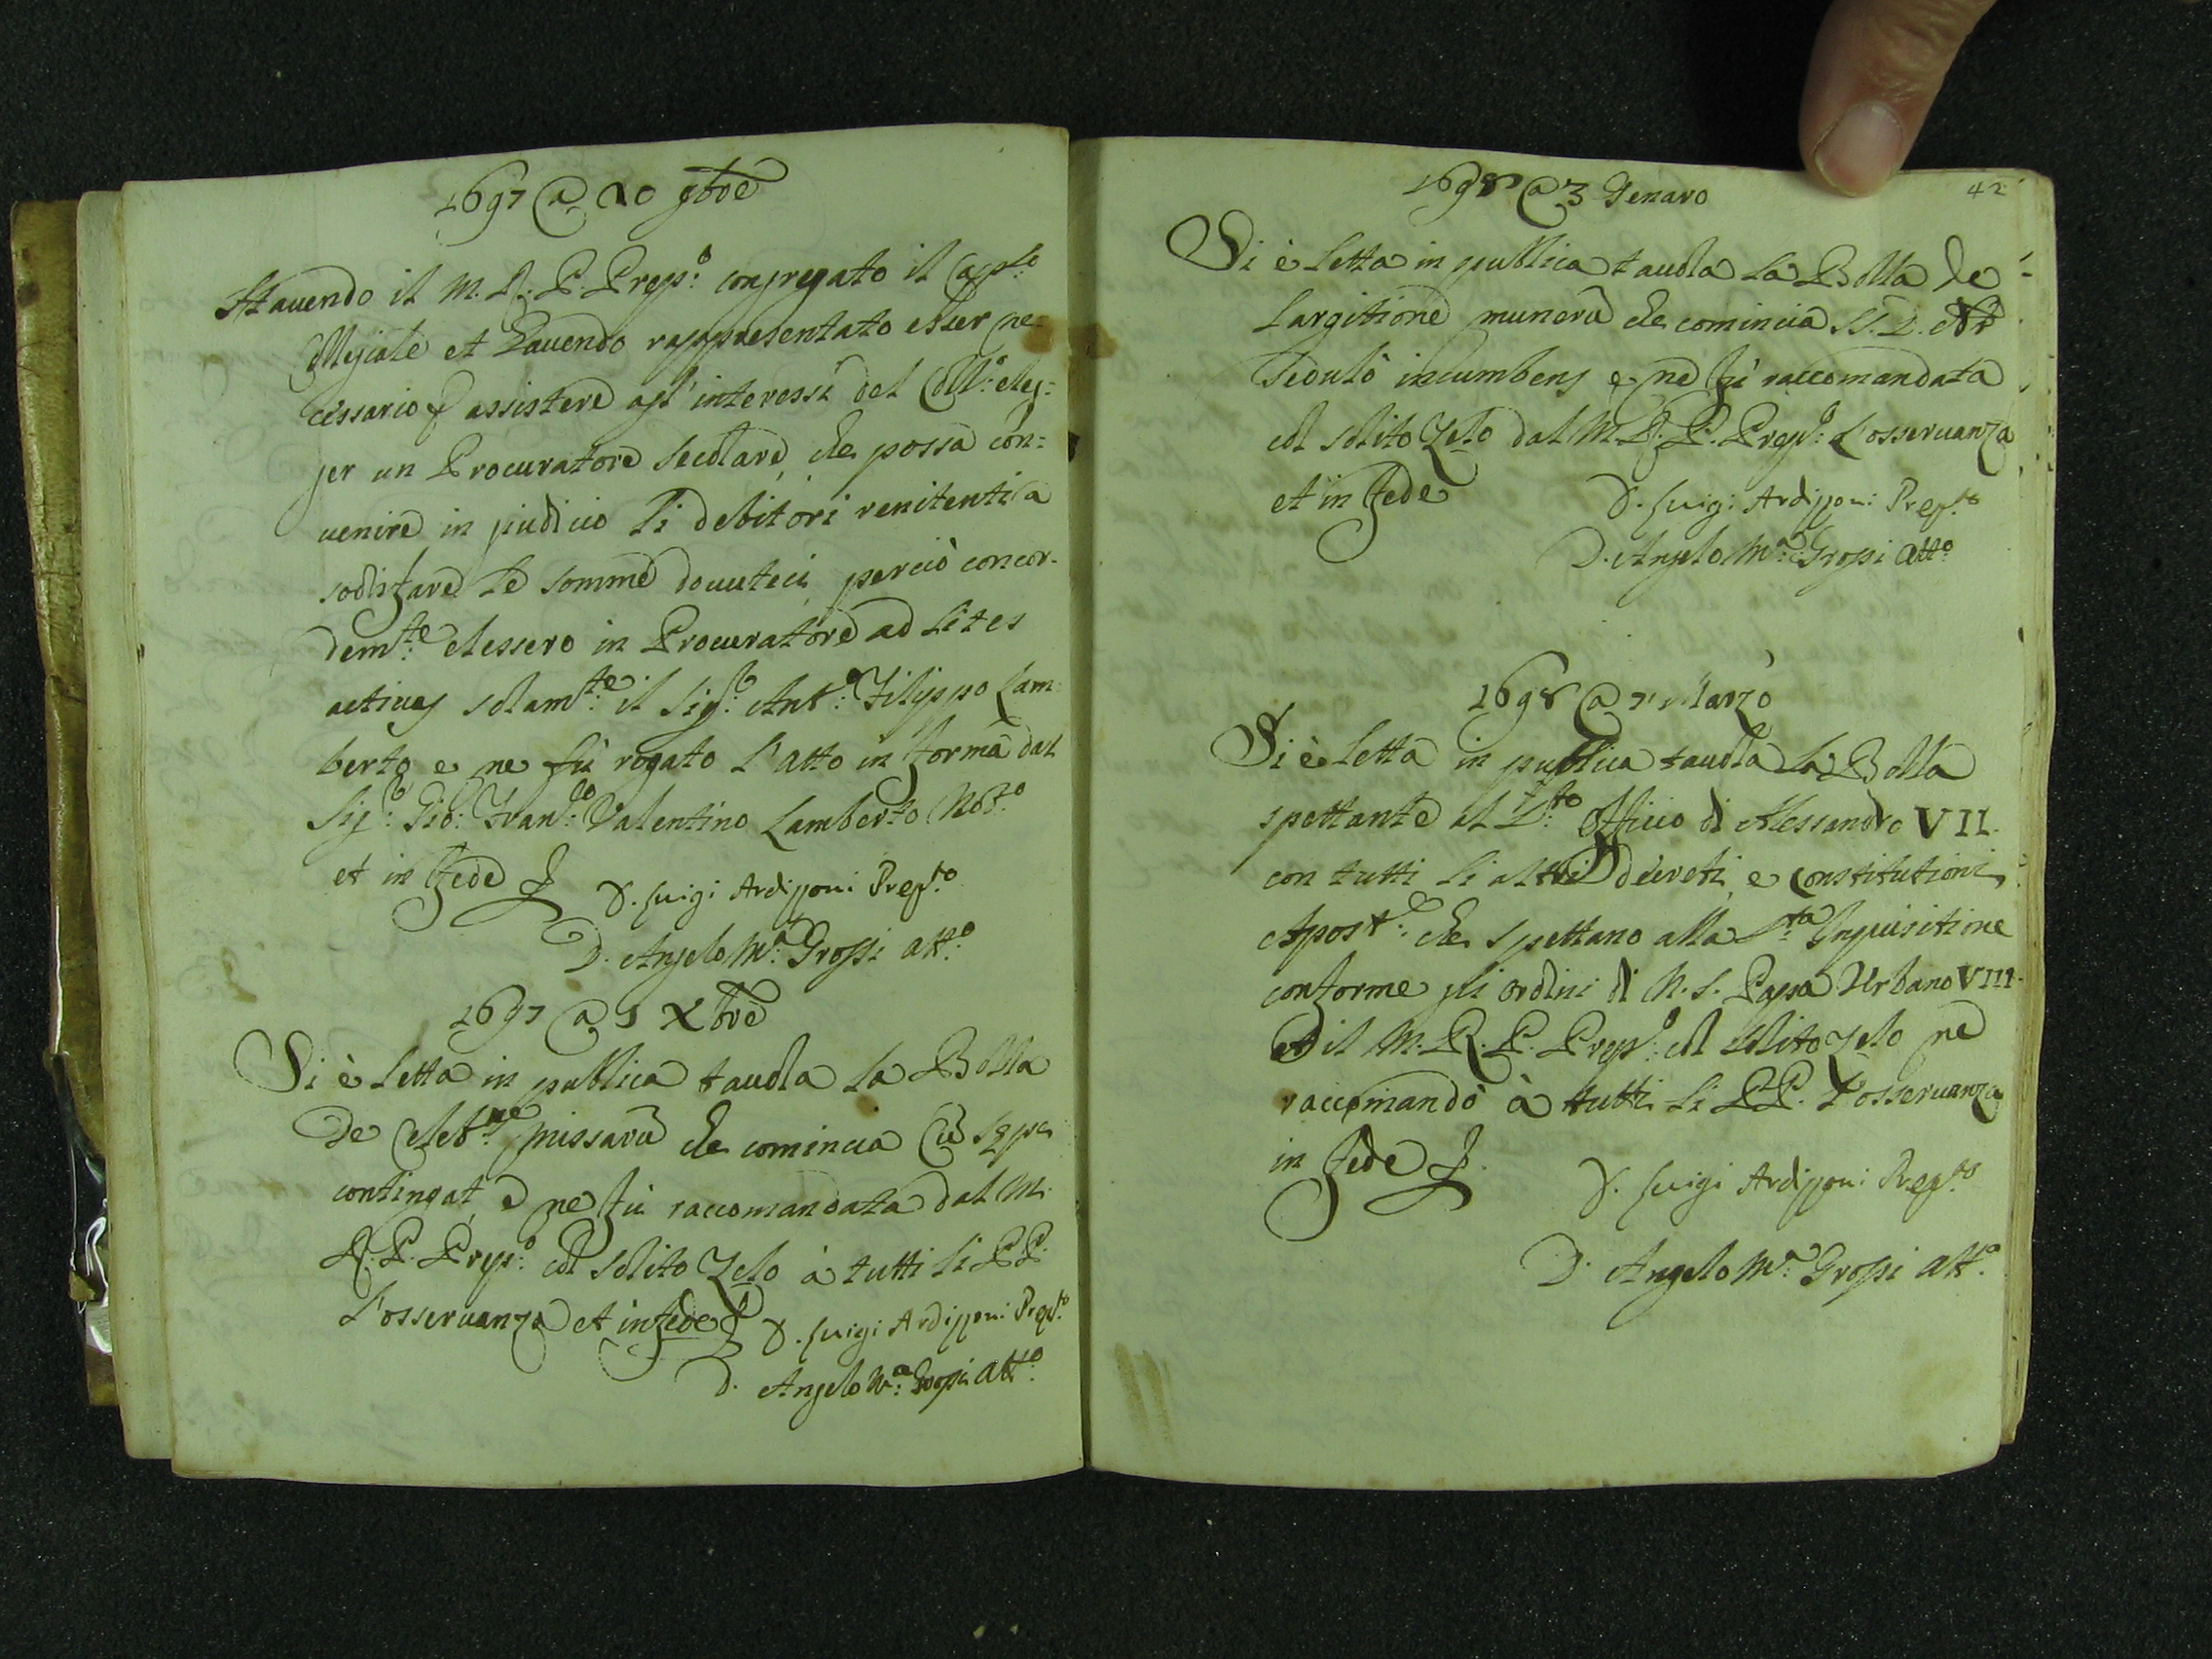 1697 @ 20 9bre
Havendo il M. R. P. Prep.o congregato il Cap.lo
Collegiale et havendo rappresentato esser ne-
cessario p assistere agl'interessi del Coll.o eleg-
ger un Procuratore secolare, che possa con=
venire in giudicio li debitori renitenti a
sodisfare le somme dovuteci, perciò concor-
dem.te elessero in Procuratore ad lites
activas solam.te il Sig.r Ant.o Filippo Lam-
berto e ne fù rogato l'atto in forma dal
Sig.r Gio: Fran.co Valentino Lamberto Not.o
et in fede
D. Luigi Ardizzoni Prep.to
D. Angelo M.a Grossi att.o
1697 @ 3 Xbre
Si è letta in publica tavola la Bolla
de Celeb.ne missarũ che comincia Cũ sępe
contingat, e ne fù raccomandata dal M.
R. P. Prep.o col solito zelo à tutti li PP.
l'osservanza et in fede
D. Luigi Ardizzoni Prep.to
D. Angelo M.a Grossi att.o
42
1698 @ 3 Genaro
Si è letta in publica tavola la Bolla de
Largitione munerũ che comincia SS. D. Nr
sedulò incumbens e ne fù raccomandata
col solito zelo dal M. R. P. Prep.o l'osservanza
et in fede
D. Luigi Ardizzoni Prep.to
D. Angelo M.a Grossi att.o
1698 @ Marzo
Si è letta in publica tavola la Bolla
spettante al S.to Officio di Alessandro VII.
con tutti li altri decreti, e constitutioni
Apost.e che spettano alla S.ta Inquisitione
conforme gli ordini di N. S. Papa Urbano VIII.
et il M. R. P. Prep.o col solito zelo ne
raccomandò à tutti li PP. l'osservanza
in fede
D. Luigi Ardizzoni Prep.to
D. Angelo M.a Grossi att.o